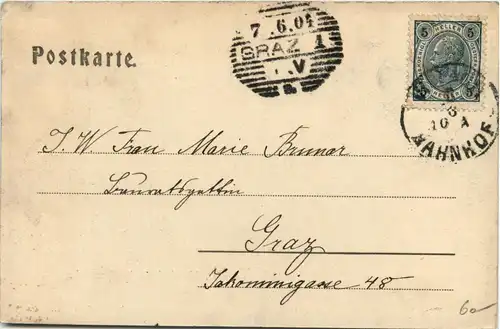 Postkarte.
7.6.04
GRAZ 1
V
5 HELLER 5
6
10 A
BAHNHOF
I. W Frau Marie Brunar
Bauratsgattin
Graz
Jakominigasse 48
60